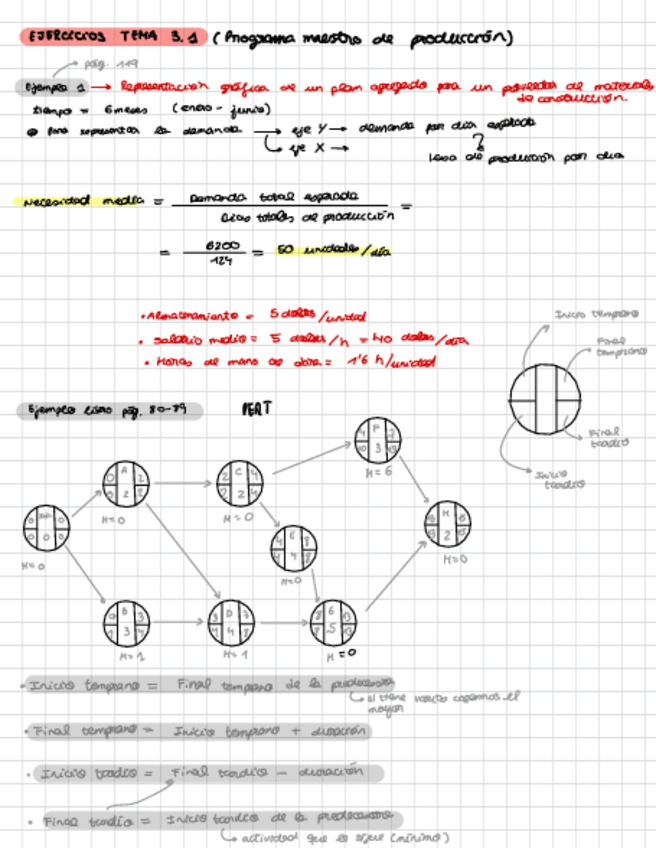 EJERCICIOS TEMA 3.1 (Programa maestro de producción)
pág. 119
Ejemplo 1 → Representación gráfica de un plan agregado para un proveedor de materiales
de construcción.
tiempo = 6 meses (enero - junio)
Para representar la demanda → eje Y → demanda por día esperada
eje X →
tasa de producción por día
Necesidad media = Demanda total esperada =
Días totales de producción
= 6200 = 50 unidades/día
124
• Almacenamiento = 5 dolares/unidad
• Salario medio = 5 dolares/h = 40 dolares/día
• Horas de mano de obra = 1'6 h/unidad
Inicio temprano
Final
temprano
Final
tardio
Inicio
tardio
Ejemplo libro pág. 80-89 PERT
F
3
H = 6
A
0 2
0 2 2
H=0
C
2 4
2 2 4
H=0
0 0
0 0 0
H=0
H
2
H=0
4 8
4 4 8
H=0
B
0 3
1 3 4
H=1
D
3 7
4 4 8
H=1
G
8 13
8 5 13
H=0
• Inicio temprano = Final temprano de la predecesora
si tiene varias cogemos el
mayor
• Final temprano = Inicio temprano + duración
• Inicio tardio = Final tardio - duración
• Final tardio = Inicio tardio de la predecesora
actividad que le sigue (mínimo)